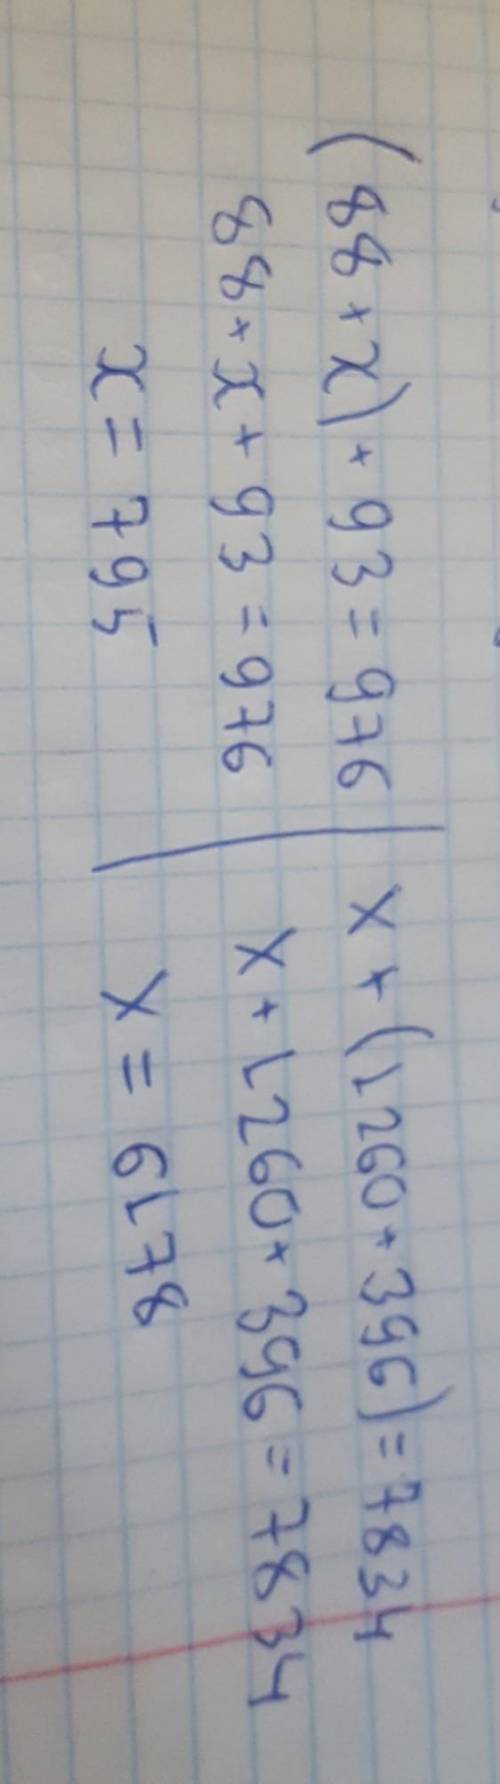 (88+x)+93=976
88+x+93=976
x=795
x+(1260+396)=7834
x+1260+396=7834
x=6178